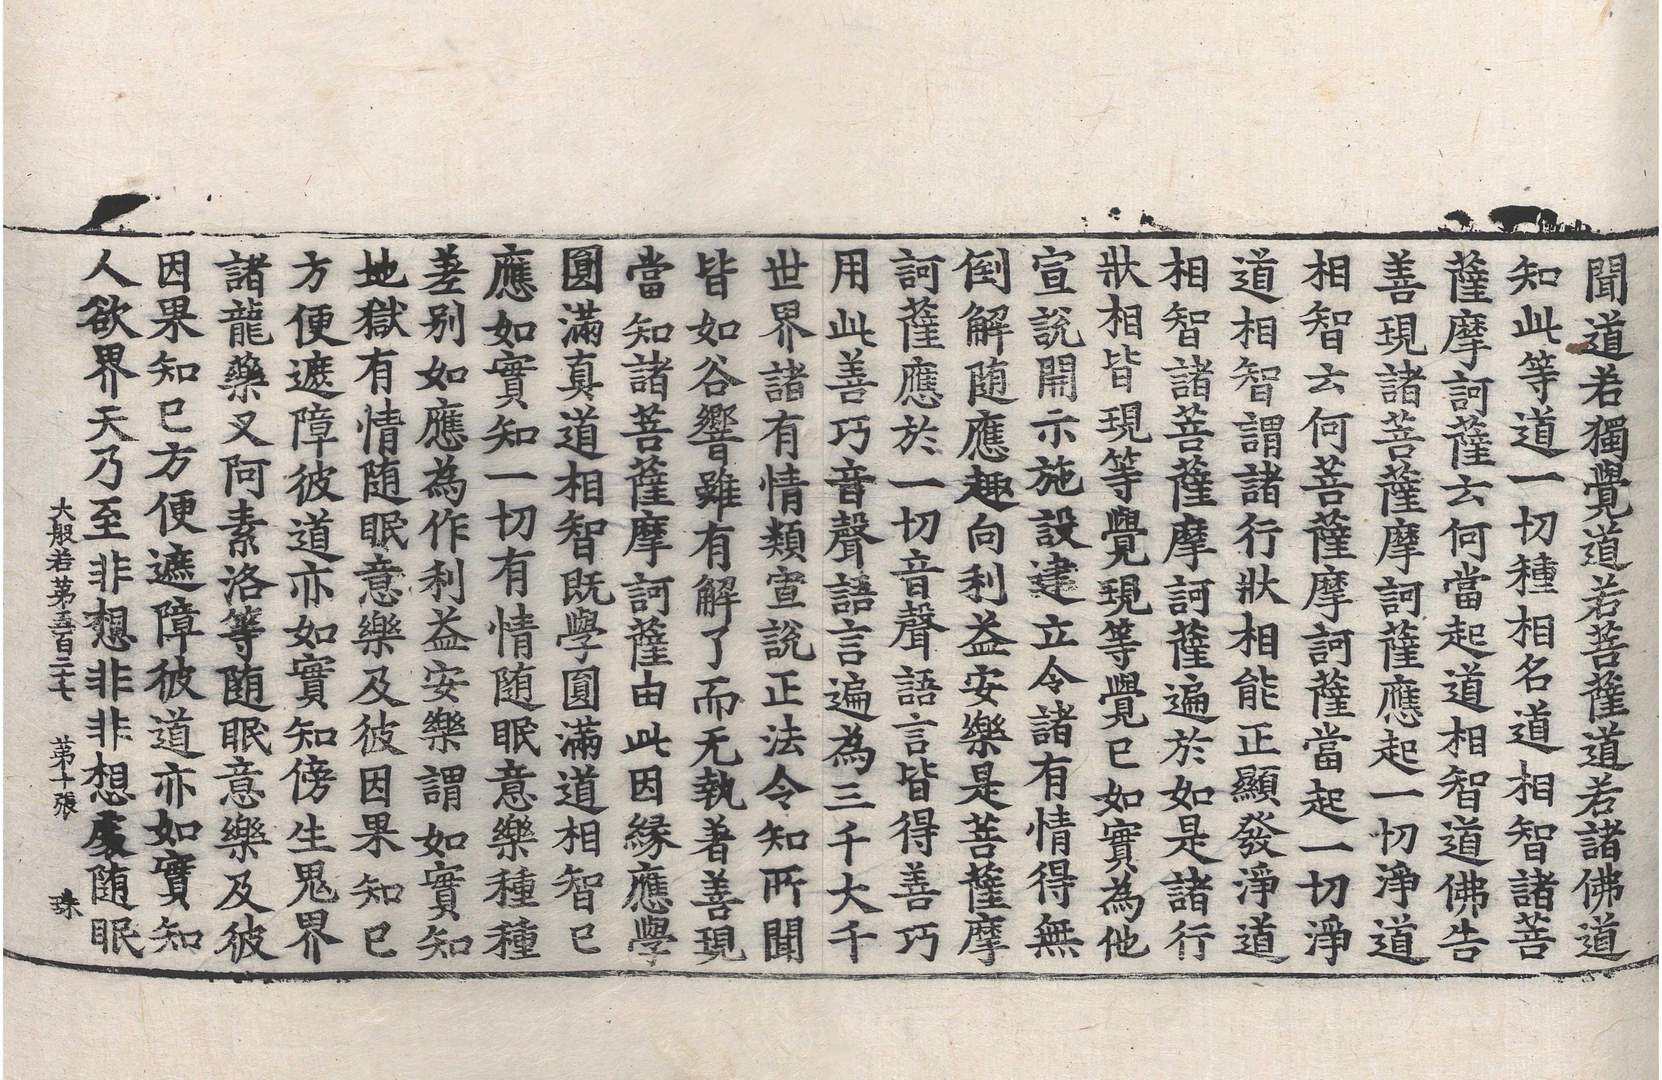 聞道若獨覺道若菩薩道若諸佛道
知此等道一切種相名道相智諸菩
薩摩訶薩云何當起道相智道佛告
善現諸菩薩摩訶薩應起一切淨道
相智云何菩薩摩訶薩當起一切淨
道相智謂諸行狀相能正顯發淨道
相智諸菩薩摩訶薩遍於如是諸行
狀相皆現等覺現等覺已如實為他
宣說開示施設建立令諸有情得無
倒解随應趣向利益安樂是菩薩摩
訶薩應於一切音聲語言皆得善巧
用此善巧音聲語言遍為三千大千
世界諸有情類宣說正法令知所聞
皆如谷響雖有解了而无執著善現
當知諸菩薩摩訶薩由此因緣應學
圓滿真道相智既學圓滿道相智已
應如實知一切有情随眠意樂種種
差別如應為作利益安樂謂如實知
地獄有情随眠意樂及彼因果知已
方便遮障彼道亦如實知傍生鬼界
諸龍藥叉阿素洛等随眠意樂及彼
因果知已方便遮障彼道亦如實知
人欲界天乃至非想非非想處随眠
大般若第五百二十七 第十張 珠